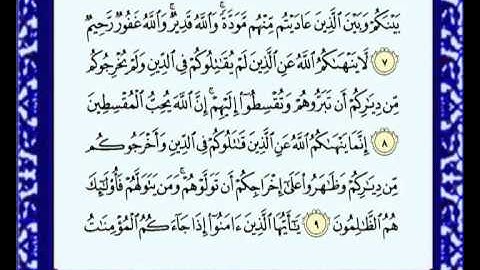 بَيْنَكُمْ وَبَيْنَ ٱلَّذِينَ عَادَيْتُم مِّنْهُم مَّوَدَّةً ۚ وَٱللَّهُ قَدِيرٌ ۚ وَٱللَّهُ غَفُورٌ رَّحِيمٌ
٧ لَّا يَنْهَىٰكُمُ ٱللَّهُ عَنِ ٱلَّذِينَ لَمْ يُقَـٰتِلُوكُمْ فِى ٱلدِّينِ وَلَمْ يُخْرِجُوكُم
مِّن دِيَـٰرِكُمْ أَن تَبَرُّوهُمْ وَتُقْسِطُوٓا۟ إِلَيْهِمْ ۚ إِنَّ ٱللَّهَ يُحِبُّ ٱلْمُقْسِطِينَ
٨ إِنَّمَا يَنْهَىٰكُمُ ٱللَّهُ عَنِ ٱلَّذِينَ قَـٰتَلُوكُمْ فِى ٱلدِّينِ وَأَخْرَجُوكُم
مِّن دِيَـٰرِكُمْ وَظَـٰهَرُوا۟ عَلَىٰٓ إِخْرَاجِكُمْ أَن تَوَلَّوْهُمْ ۚ وَمَن يَتَوَلَّهُمْ فَأُو۟لَـٰٓئِكَ
هُمُ ٱلظَّـٰلِمُونَ ٩ يَـٰٓأَيُّهَا ٱلَّذِينَ ءَامَنُوٓا۟ إِذَا جَآءَكُمُ ٱلْمُؤْمِنَـٰتُ